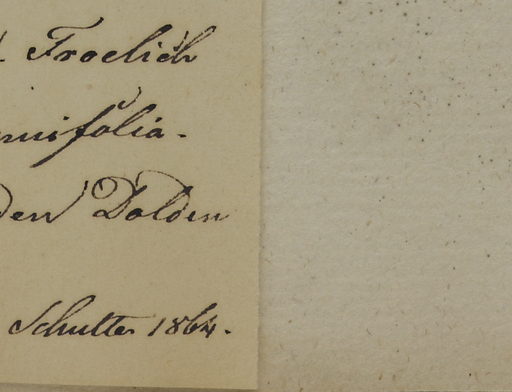 Froelich
nuifolia.
den Dolden
Schutter 1864.